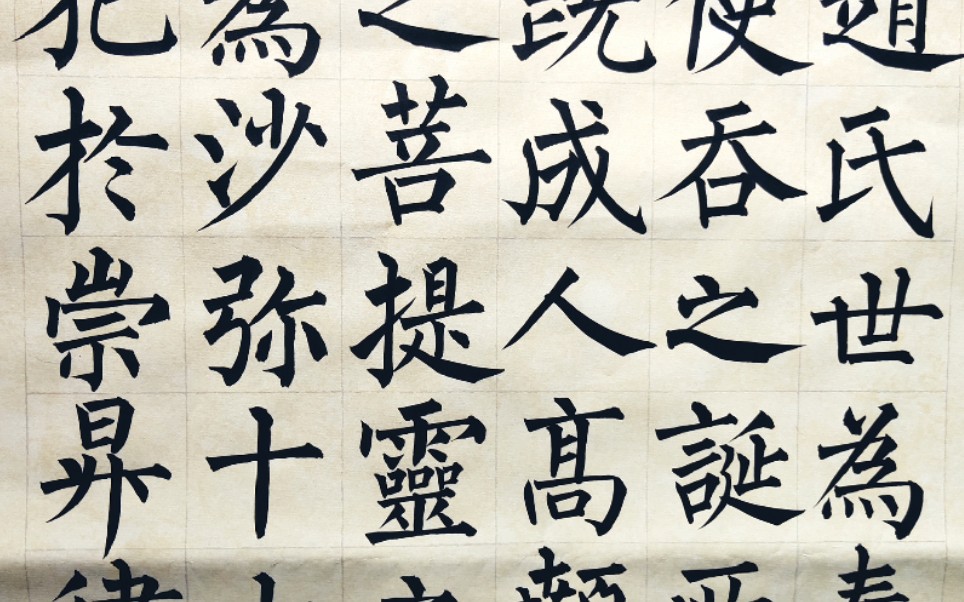 氏世為
使吞之誕
既成人高
之菩提靈
為沙弥十
犯於崇昇